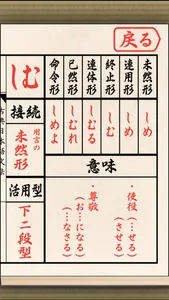 戻る
未然形
しめ
連用形
しめ
終止形
しむ
連体形
しむる
已然形
しむれ
命令形
しめよ
しむ
接続
用言の
未然形
活用型
下二段型
意味
・使役
(…せる
させる)
・尊敬
(お…になる)
(…なさる)